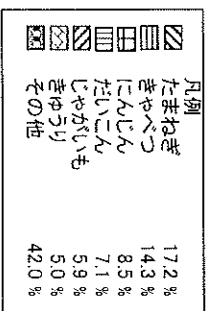 凡例
たまねぎ 17.2 %
きゃべつ 14.3 %
にんじん 8.5 %
だいこん 7.1 %
じゃがいも 5.9 %
きゅうり 5.0 %
その他 42.0 %